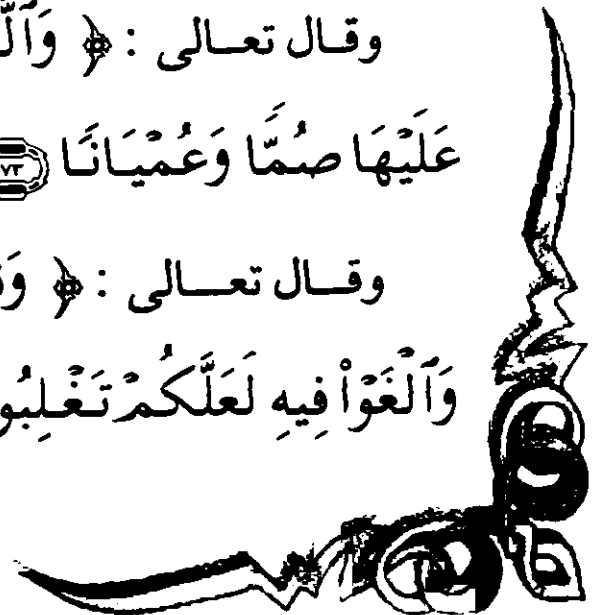 وقال تعالى : ﴿ وَٱلَّ
عَلَيْهَا صُمًّا وَعُمْيَانًا ٧٣
وقال تعالى : ﴿
وَٱلْغَوْا۟ فِيهِ لَعَلَّكُمْ تَغْلِبُو